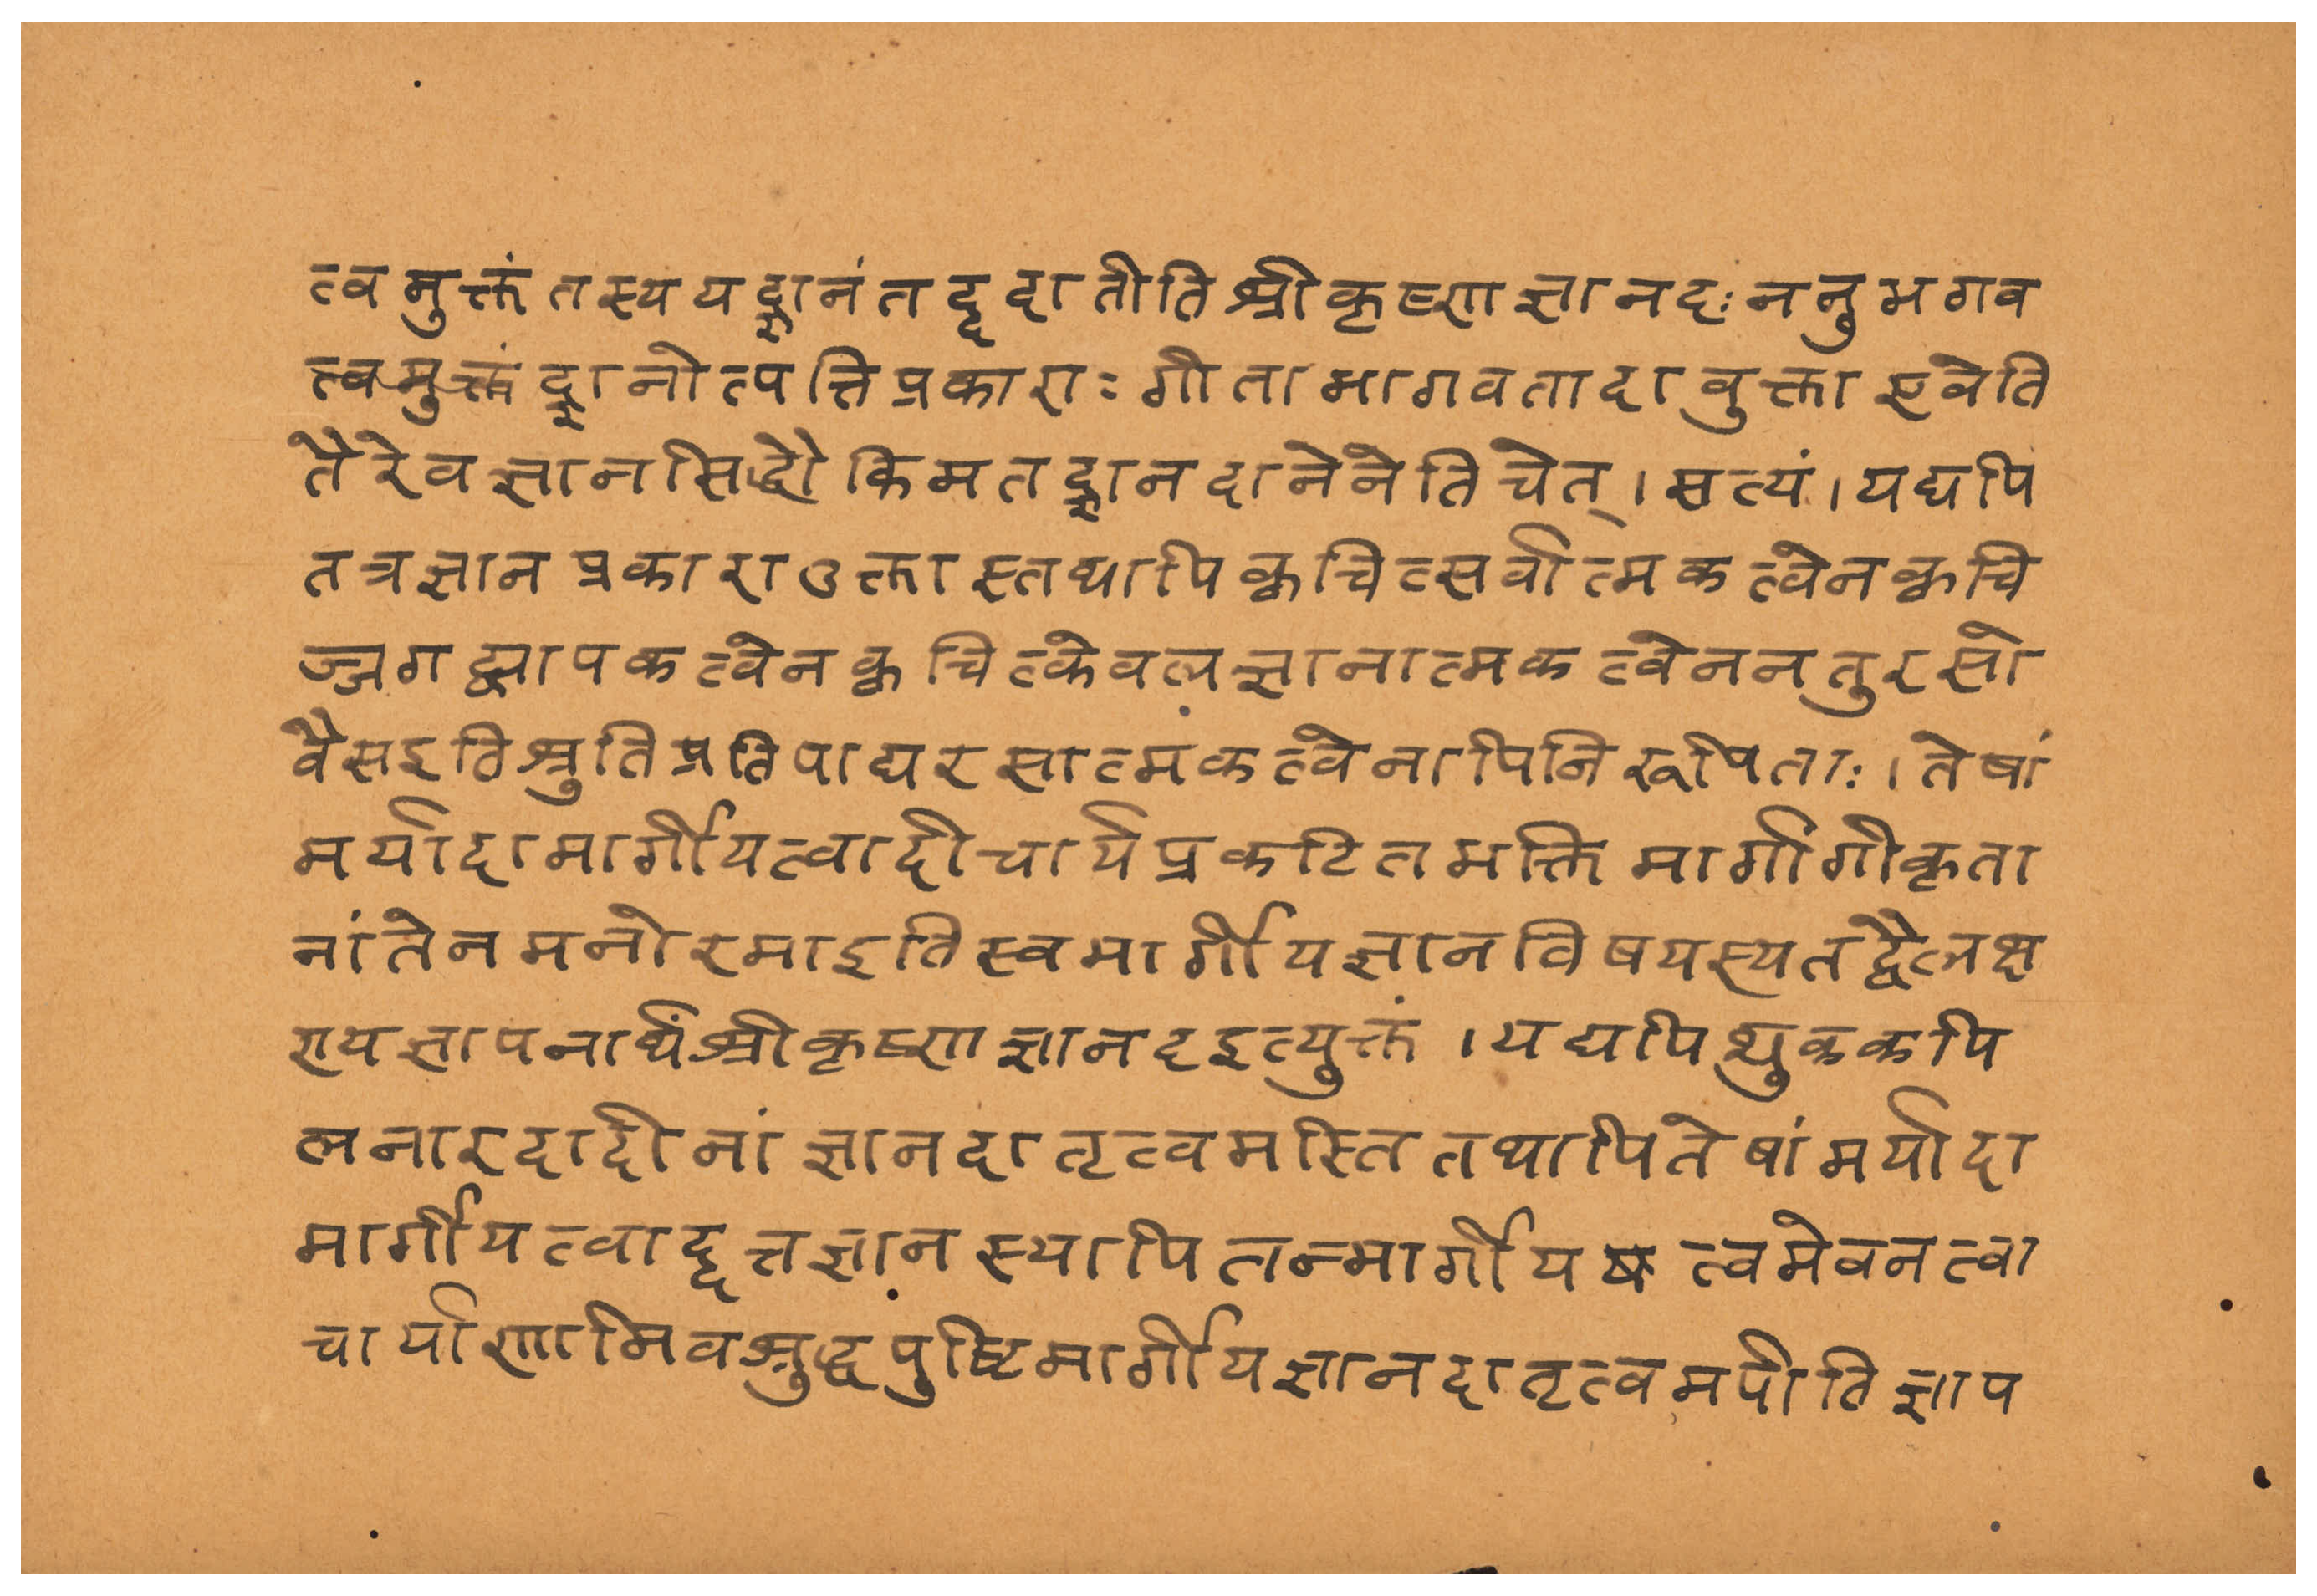 त्वमुक्तं तस्य यद्ज्ञानं तद्ददातीति श्रीकृष्णज्ञानदः ननु भगव
त्त्वमुक्तं द्ज्ञानोत्पत्तिप्रकाराः गीताभागवतादावुक्ता एवेति
तैरेव ज्ञानसिद्धौ किमतद्ज्ञानदानेनेति चेत् । सत्यं । यद्यपि
तत्र ज्ञानप्रकारा उक्तास्तथापि क्वचित्सर्वात्मकत्वेन क्वचि
ज्जगद्व्यापकत्वेन क्वचित्केवलज्ञानात्मकत्वेन न तु रसो
वै स इति श्रुतिप्रतिपाद्यरसात्मकत्वेनापि निरूपिताः । तेषां
मर्यादामार्गीयत्वादाचार्यप्रकटितभक्तिमार्गांगीकृता
नां ते न मनोरमा इति स्वमार्गीयज्ञानविषयस्य तद्वैलक्ष
ण्यज्ञापनार्थं श्रीकृष्णज्ञानद इत्युक्तं । यद्यपि शुककपि
लनारदादीनां ज्ञानदातृत्वमस्ति तथापि तेषां मर्यादा
मार्गीयत्वाद्दत्तज्ञानस्यापि तन्मार्गीयत्वमेव न त्वा
चार्याणामिव शुद्धपुष्टिमार्गीयज्ञानदातृत्वमपीति ज्ञाप